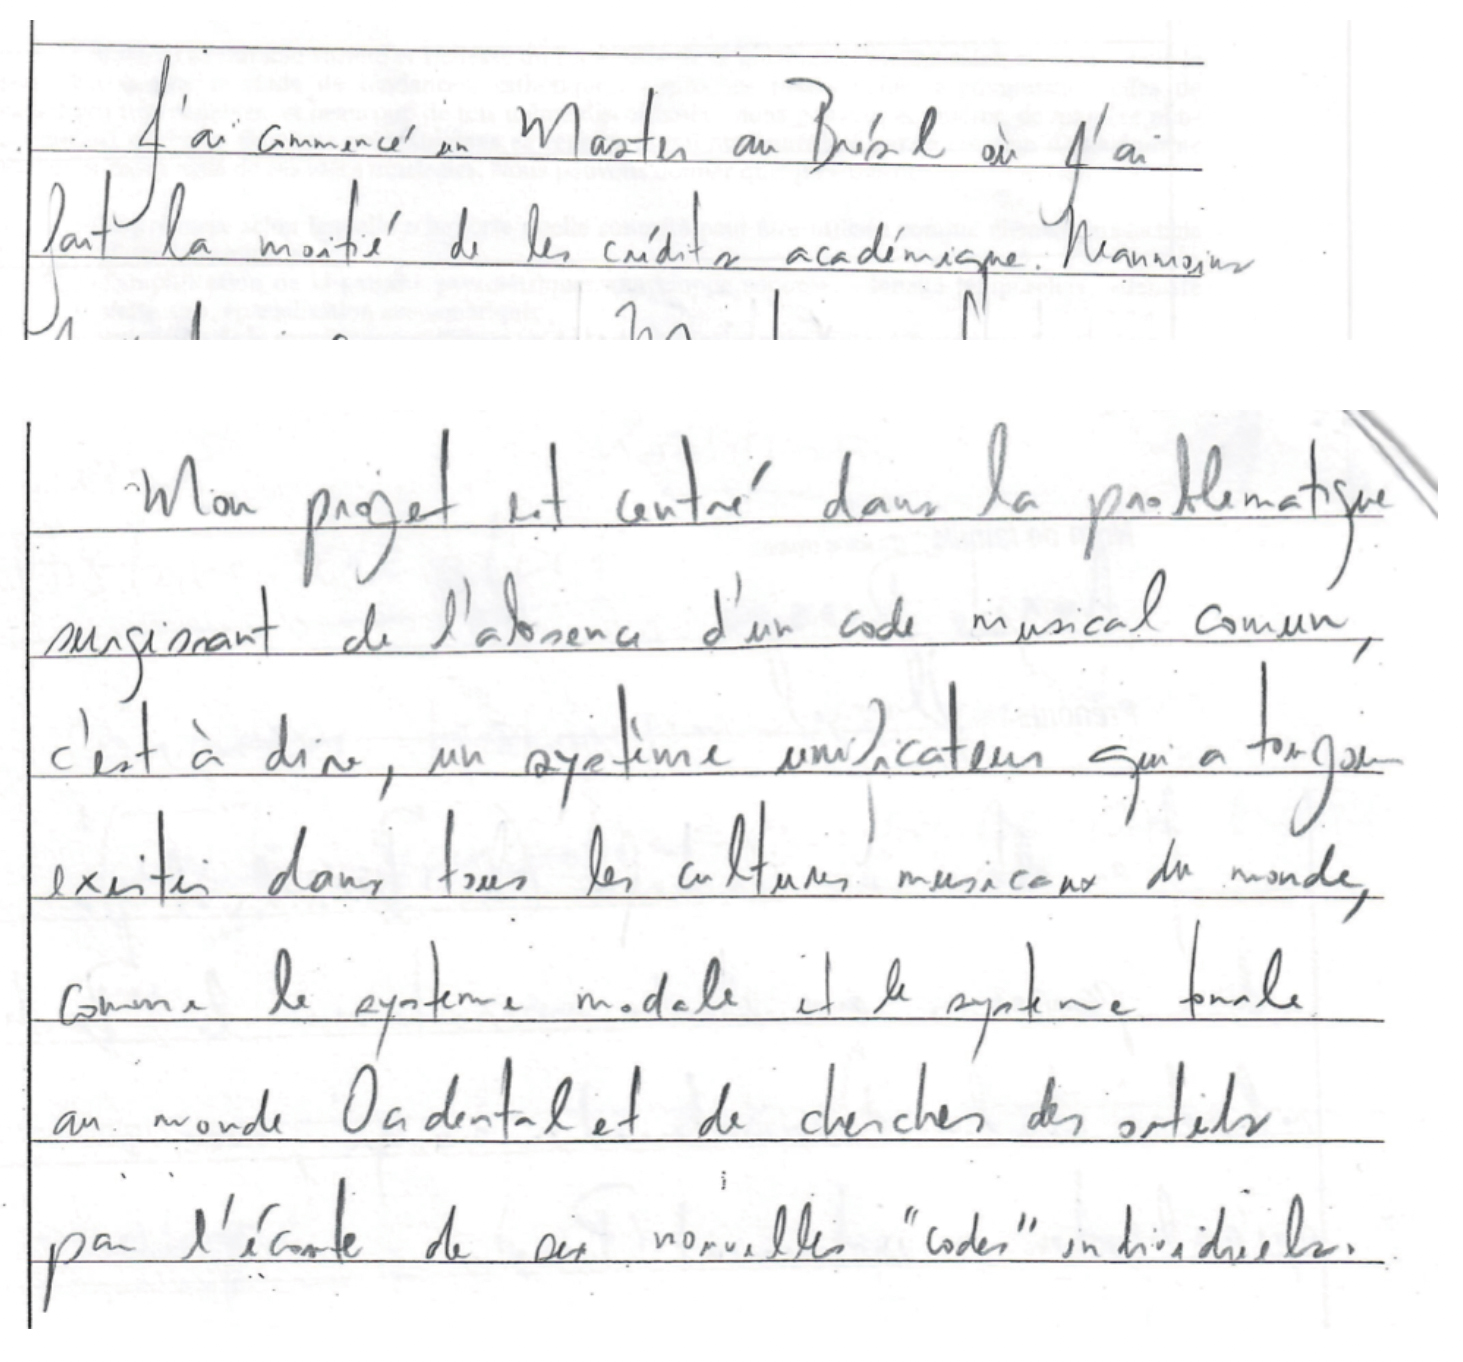 J'ai commencé un Master au Brésil où j'ai
fait la moitié de les crédits académique. Neanmoins
Mon projet est centré dans la problematique
surgissant de l'absence d'un code musical comun,
c'est à dire, un système unificateur qui a toujour
exister dans tous les cultures musicaux du monde,
comme le systeme modale et le systeme tonale
au monde Occidental et de chercher des outils
par l'écoute de ses nouvelles "codes" individuels.